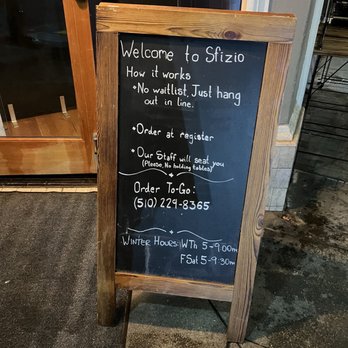 Welcome to Sfizio
How it works
• No waitlist, Just hang
out in line.
• Order at register
• Our Staff will seat you
(Please, No holding tables)
Order To-Go:
(510) 229-8365
Winter Hours: WTh 5-9:00m
F Sat 5-9:30m